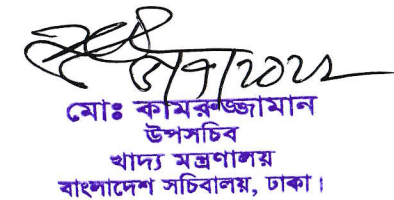 মোঃ কামরুজ্জামান
উপসচিব
খাদ্য মন্ত্রণালয়
বাংলাদেশ সচিবালয়, ঢাকা।